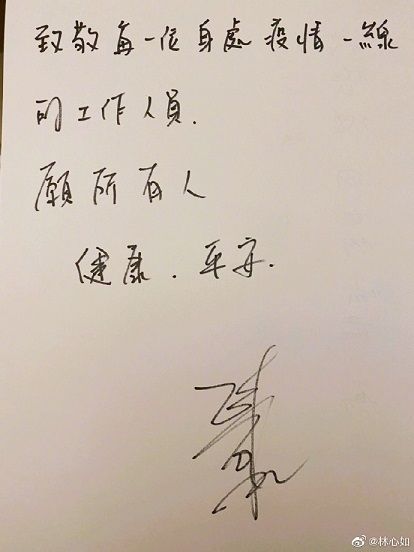 致敬每一位身處疫情一線
的工作人員.
願所有人
健康.平安.
@林心如